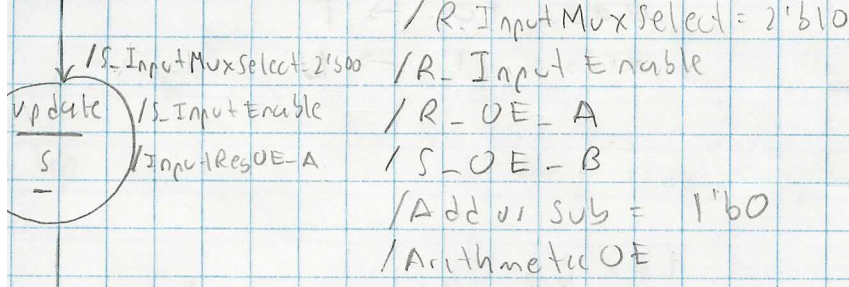 /R_InputMuxSelect = 2'b10
/S_InputMuxSelect=2'b00
/R_InputEnable
update
/S_InputEnable
/R_OE_A
S
/InputRegOE_A
/S_OE_B
/Add or Sub = 1'b0
/ArithmeticOE